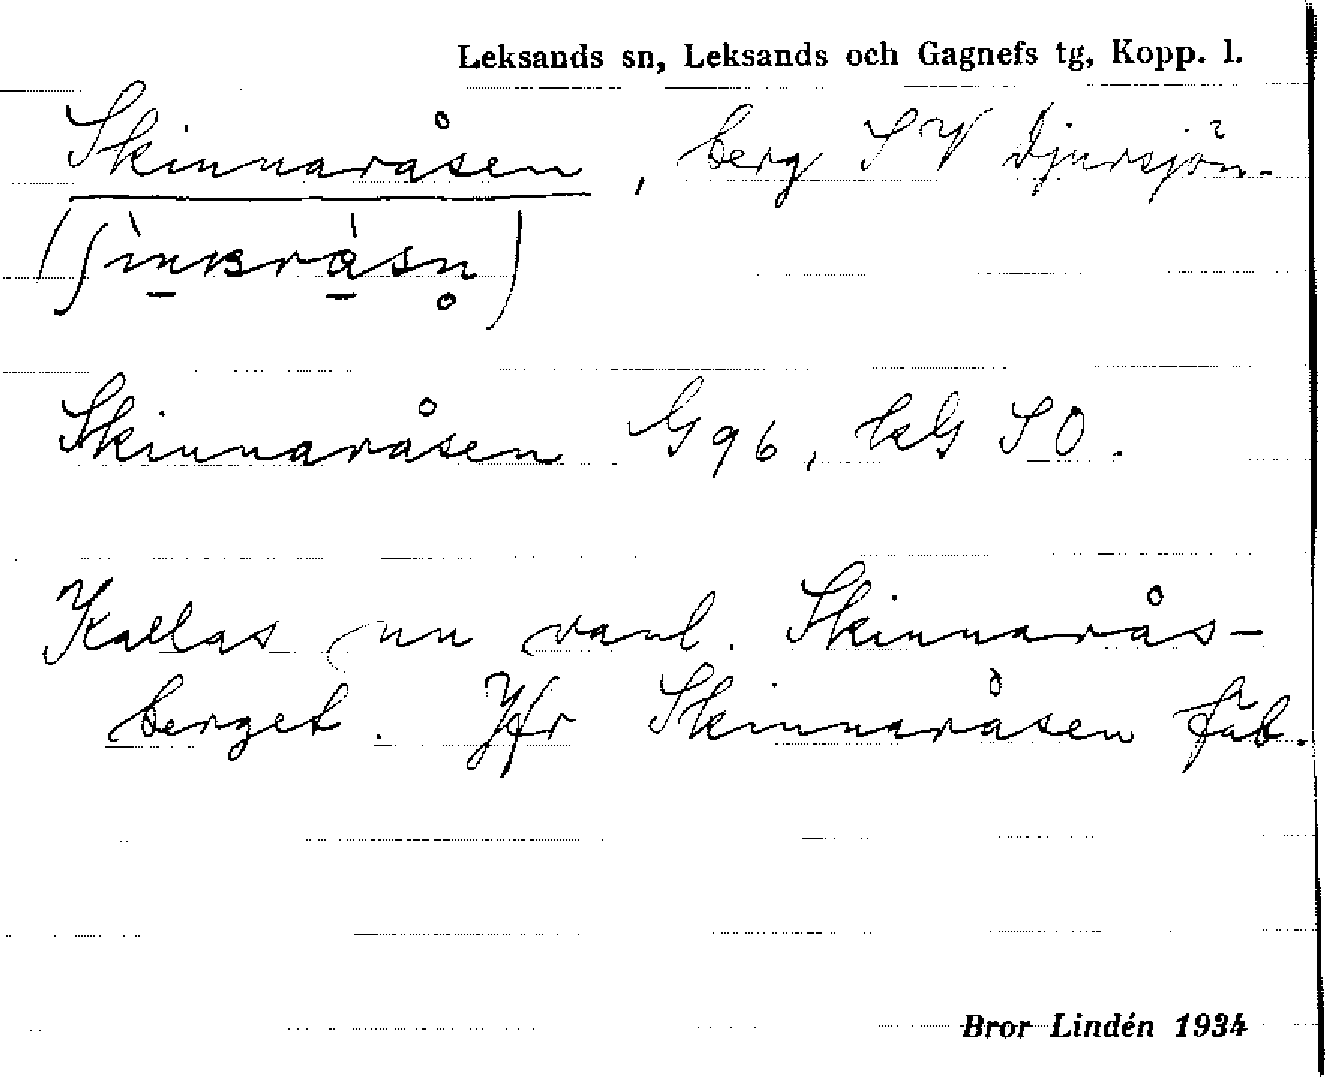 Leksands sn, Leksands och Gagnefs tg, Kopp. l.
Skinnaråsen, berg SV Djursjön.
Skinnaråsen G 96, hG SO.
Kallas nu vanl. Skinnarås-
berget. Jfr Skinnaråsen fäb.
Bror Lindén 1934